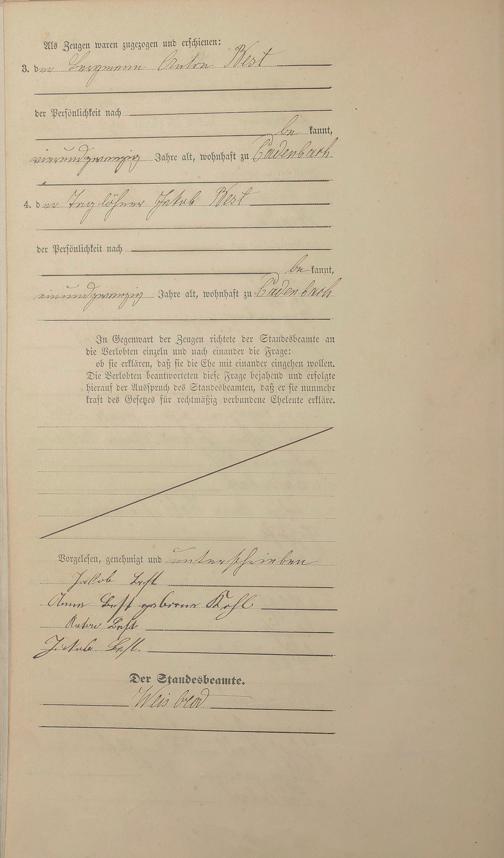 Als Zeugen waren zugezogen und erschienen:
3. der Bergmann Anton Best
der Persönlichkeit nach
be kannt,
vierundzwanzig Jahre alt, wohnhaft zu Cadenbach
4. der Taglöhner Jakob Best
der Persönlichkeit nach
be kannt,
einundzwanzig Jahre alt, wohnhaft zu Cadenbach
In Gegenwart der Zeugen richtete der Standesbeamte an
die Verlobten einzeln und nach einander die Frage:
ob sie erklären, daß sie die Ehe mit einander eingehen wollen.
Die Verlobten beantworteten diese Frage bejahend und erfolgte
hierauf der Ausspruch des Standesbeamten, daß er sie nunmehr
kraft des Gesetzes für rechtmäßig verbundene Eheleute erkläre.
Vorgelesen, genehmigt und unterschrieben
Jakob Best
Anna Best geborene Kohl
Anton Best
Jakob Best
Der Standesbeamte.
Weisbrod